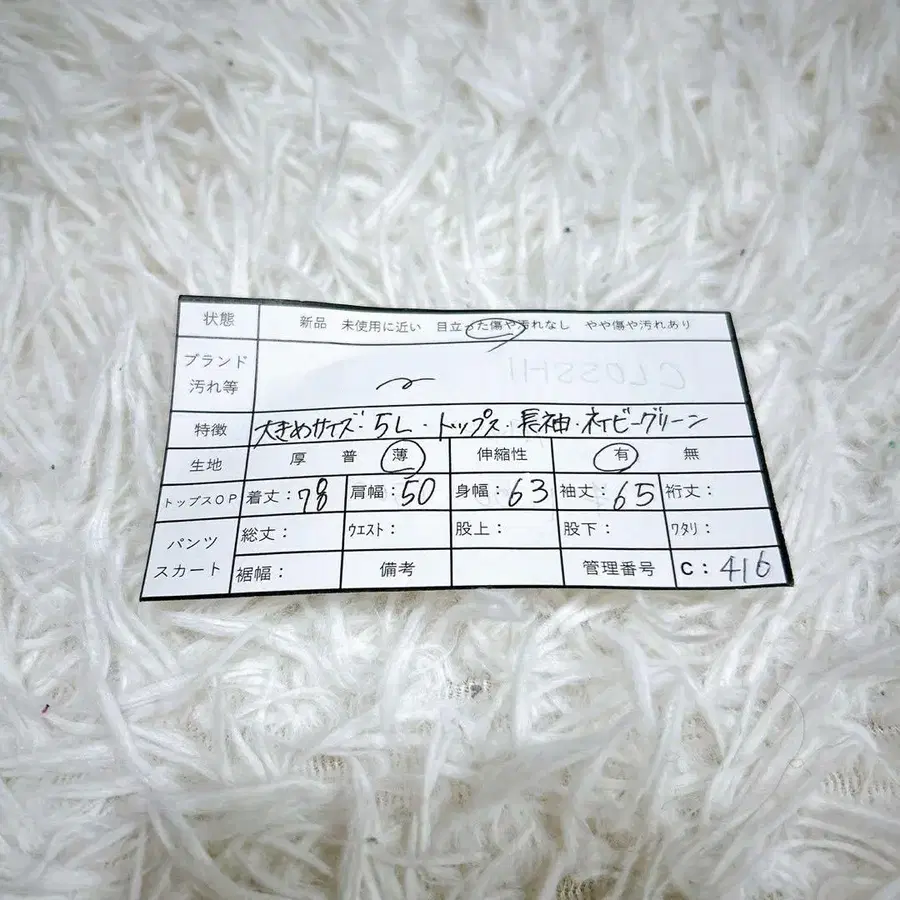 状態 新品 未使用に近い 目立った傷や汚れなし やや傷や汚れあり
ブランド
汚れ等
特徴 大きめサイズ・5L・トップス・長袖・ネイビーグリーン
生地 厚 普 薄 伸縮性 有 無
トップスOP 着丈:78 肩幅:50 身幅:63 袖丈:65 裄丈:
パンツ
スカート
総丈: ウエスト: 股上: 股下: ワタリ:
裾幅: 備考 管理番号 C:416